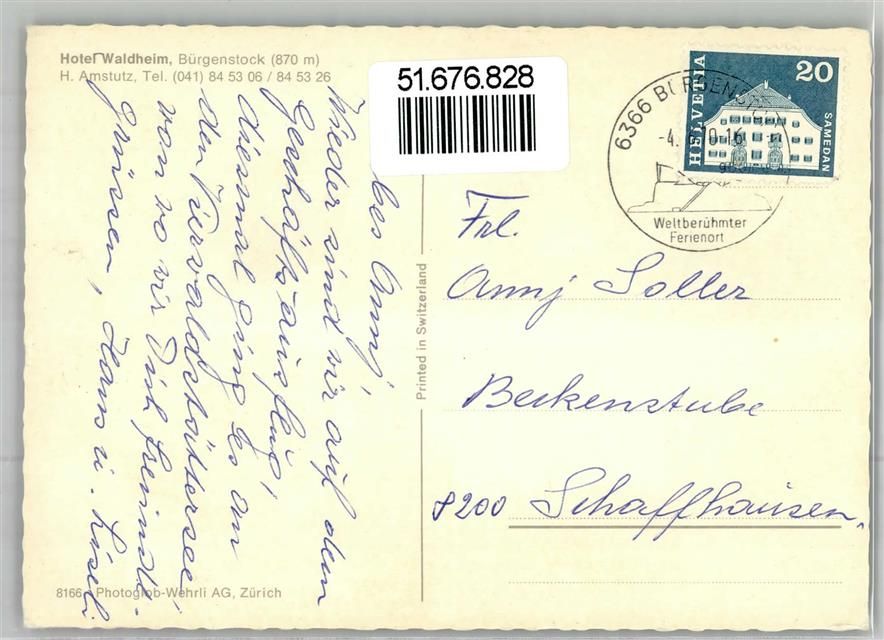 Hotel Waldheim, Bürgenstock (870 m)
H. Amstutz, Tel. (041) 84 53 06 / 84 53 26
51.676.828
bes Annj,
Wieder sind wir auf dem
Geschäftsausflug,
diesmal ging es an
den Vierwaldstättersee,
von wo wir Dich freundl.
grüssen, Hans u. Liseli
8166 Photoglob-Wehrli AG, Zürich
Printed in Switzerland
6366 BÜRGENSTOCK
-4.
0-16
Weltberühmter
Ferienort
HELVETIA
20
SAMEDAN
Frl.
Annj Soller
Beckenstube
8200 Schaffhausen.